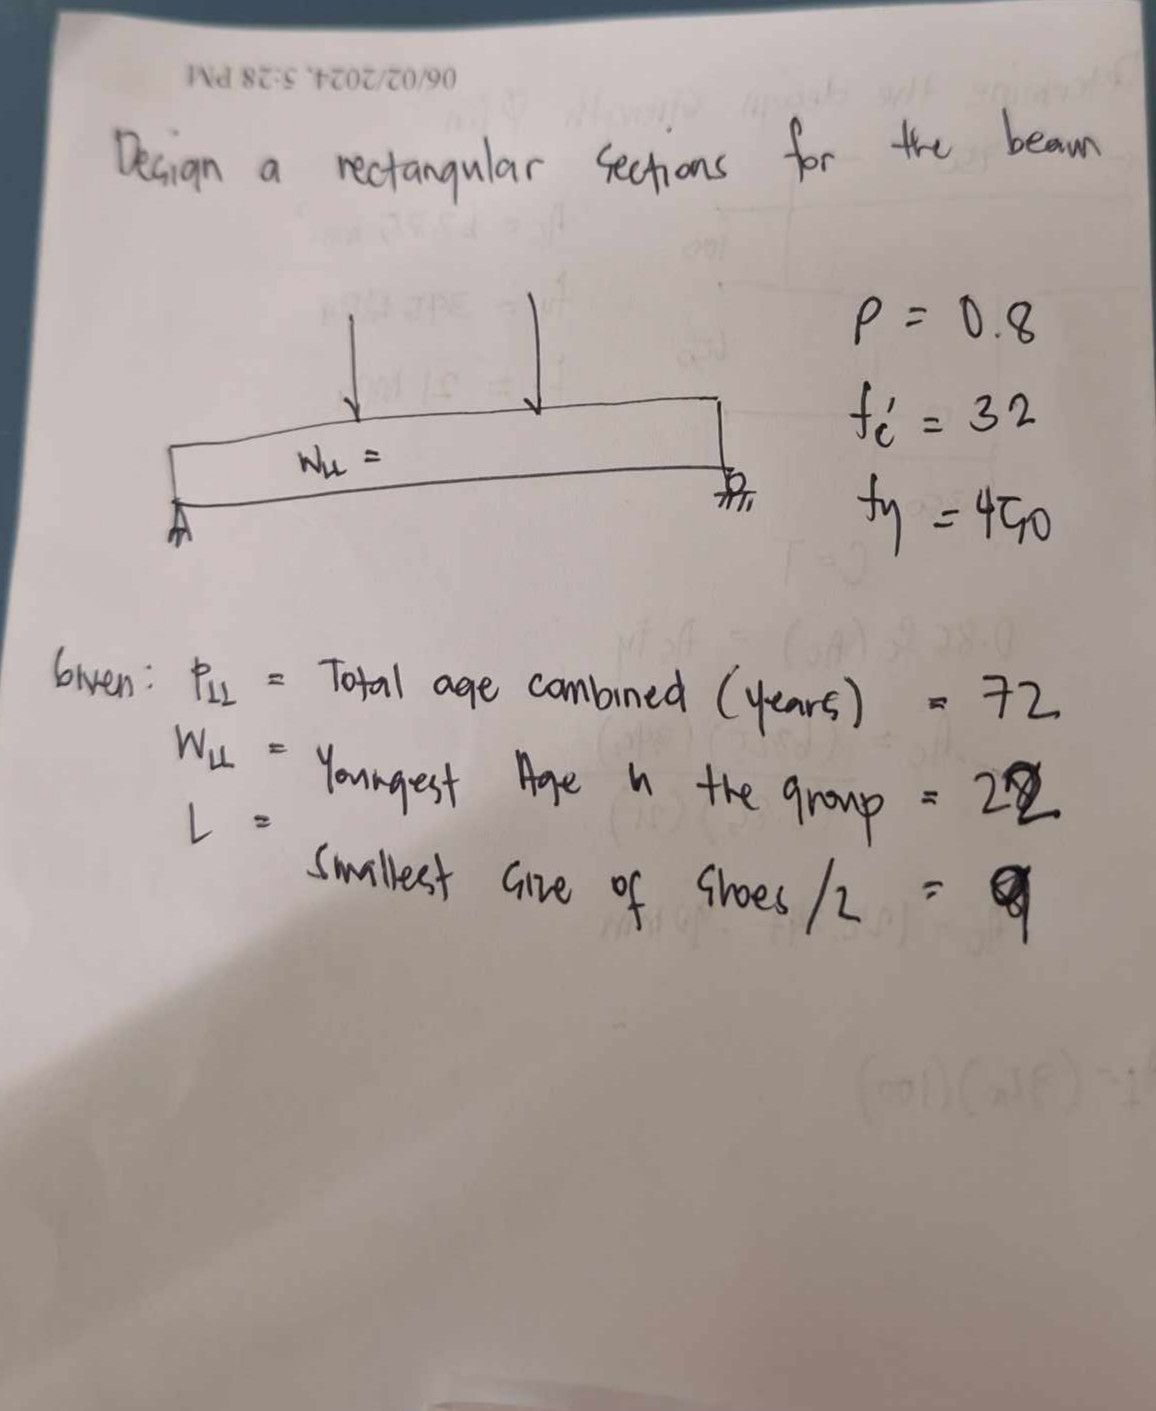 06/02/2024, 5:28 PM
Design a rectangular sections for the beam
ρ = 0.8
fc' = 32
WLL =
fy = 450
Given: PLL = Total age combined (years) = 72
WLL = Youngest Age in the group = 22
L = Smallest Size of Shoes /2 = 9